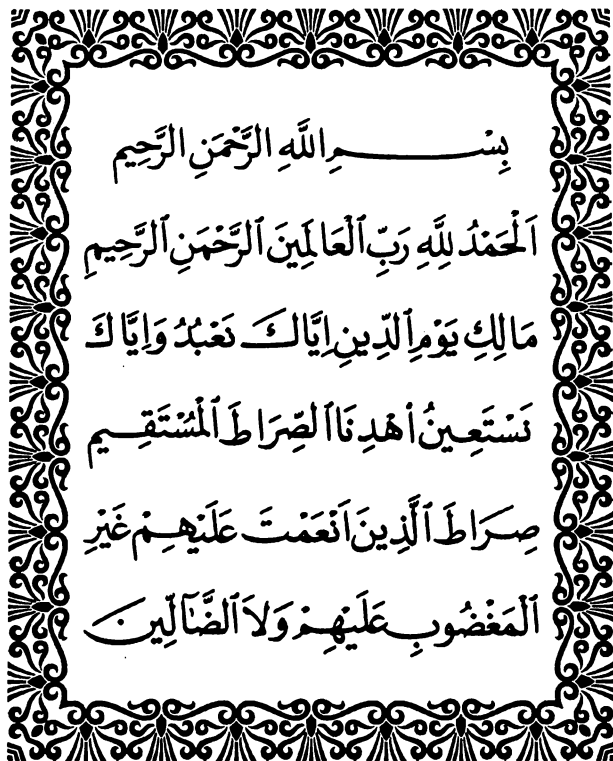 بِسْـــــمِ اللَّهِ الرَّحْمَنِ الرَّحِيمِ
اَلْحَمْدُ لِلَّهِ رَبِّ ٱلْعَالَمِينَ ٱلرَّحْمَنِ ٱلرَّحِيمِ
مَالِكِ يَوْمِ ٱلدِّينِ اِيَّاكَ نَعْبُدُ وَاِيَّاكَ
نَسْتَعِينُ ٱهْدِنَا ٱلصِّرَاطَ ٱلْمُسْتَقِيمَ
صِرَاطَ ٱلَّذِينَ اَنْعَمْتَ عَلَيْهِمْ غَيْرِ
ٱلْمَغْضُوبِ عَلَيْهِمْ وَلاَ ٱلضَّآلِّينَ